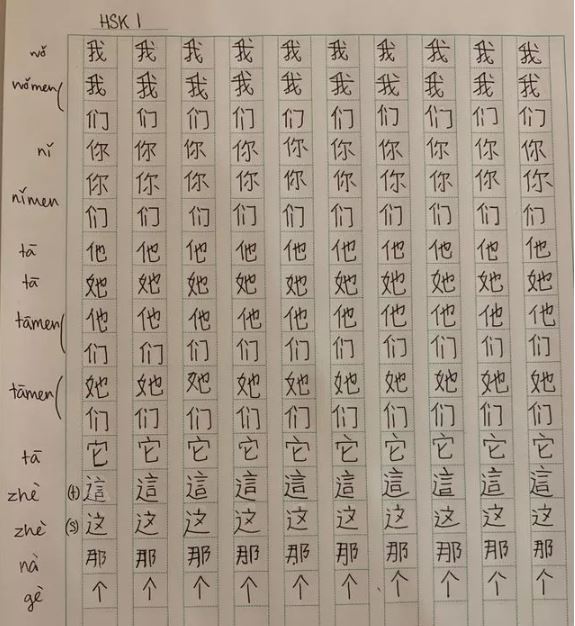 HSK 1
wǒ 我 我 我 我 我 我 我 我 我 我
wǒmen( 我 我 我 我 我 我 我 我 我 我
们 们 们 们 们 们 们 们 们 们
nǐ 你 你 你 你 你 你 你 你 你 你
nǐmen 你 你 你 你 你 你 你 你 你 你
们 们 们 们 们 们 们 们 们 们
tā 他 他 他 他 他 他 他 他 他 他
tā 她 她 她 她 她 她 她 她 她 她
tāmen( 他 他 他 他 他 他 他 他 他 他
们 们 们 们 们 们 们 们 们 们
tāmen( 她 她 她 她 她 她 她 她 她 她
们 们 们 们 们 们 们 们 们 们
tā 它 它 它 它 它 它 它 它 它 它
zhè (t) 這 這 這 這 這 這 這 這 這 這
zhè (s) 这 这 这 这 这 这 这 这 这 这
nà 那 那 那 那 那 那 那 那 那 那
gè 个 个 个 个 个 个 个 个 个 个